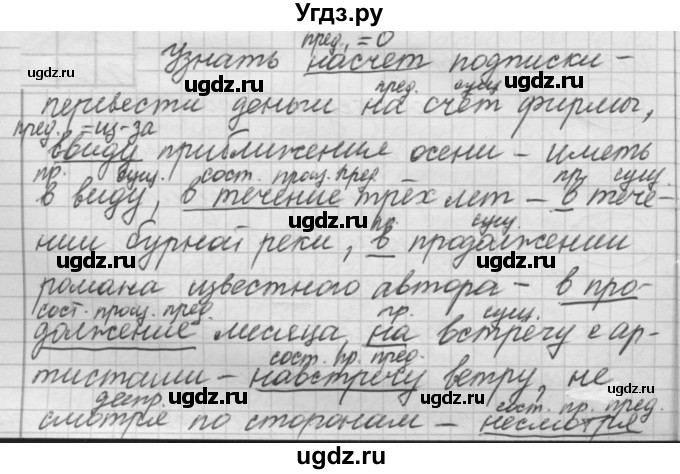 Угдз.ру
пред. = о
Узнать насчет подписки –
пред. сущ.
перевести деньги на счет фирмы,
пред. = из-за
ввиду приближения осени – иметь
пр. сущ. сост. прош. пред. пр. сущ.
в виду, в течение трёх лет – в тече-
пр. сущ.
нии бурной реки, в продолжении
романа известного автора – в про-
сост. прош. пред. пр. сущ.
должение месяца, на встречу с ар-
сост. пр. пред.
тистами – навстречу ветру, не
деепр. сост. пр. пред.
смотря по сторонам – несмотря
ugdz.ru
ugdz.ru
ugdz.ru
ugdz.ru
ugdz.ru
ugdz.ru
ugdz.ru
ugdz.ru
ugdz.ru
ugdz.ru
ugdz.ru
ugdz.ru
ugdz.ru